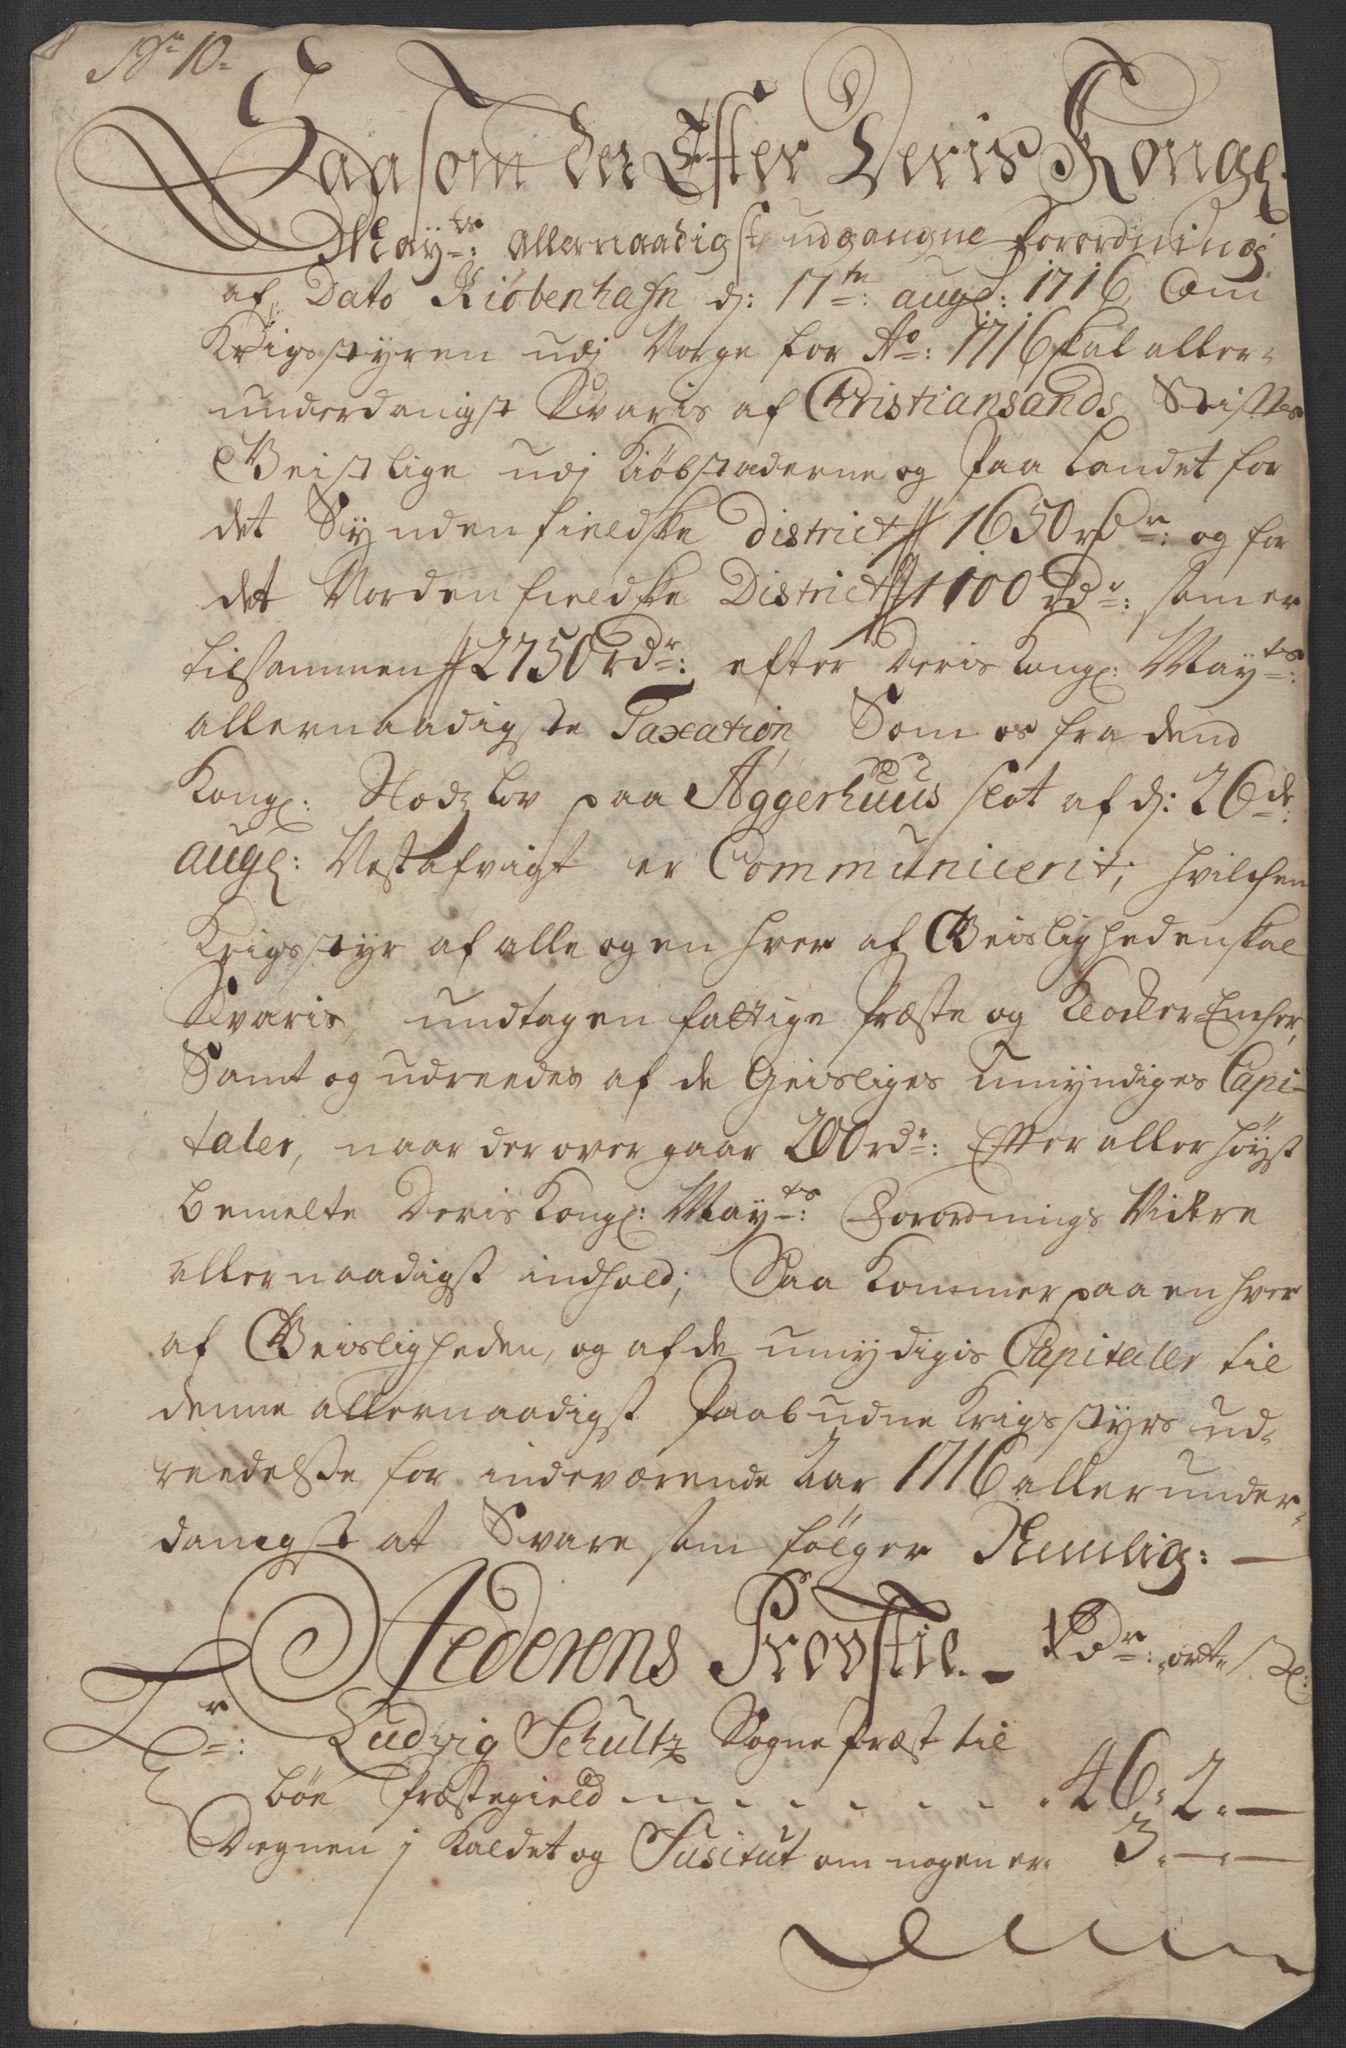 No. 10.
Saasom der Efter Deris Kongl:
Mayts: allernaadigste udgangne forordning
af Dato Kiøbenhafn d: 17tn: augl: 1716 Om
Krigsstyren udj Norge for Ao: 1716 skal aller-
underdanigst Svaris af Christiansands Stiftes
Geistlige udj Kiøbstæderne og paa Landet for
det Syndenfieldske District 1650 rdr: og for
det Nordenfieldske District 1100 rdr: som er
tilsammen 2750 rdr: efter Deris Kongl: Mayts:
allernaadigste Taxation, Som os fra dend
Kongl: Slodz lov paa Aggerhuus slot af d: 26de:
augl: Nestafvigt er Communicerit; hvilchen
Krigsstyr af alle og en hver af Geisligheden skal
Svaris, undtagen fattige Præste og Klocker-Encher,
Samt og udreedes af de Geisliges umyndiges Capi-
taler, naar der over gaar 200 rdr: Efter allerhøyst
bemelte Deris Kongl: Mayts: Forordnings Videre
allernaadigst indhold; Saa kommer paa en hver
af Geisligheden, og af de umydigis Capitaler til
denne allernaadigst Paabudne Krigsstyrs ud-
reedelse for indeværende Aar 1716 allerunder-
danigst at Svare som følger Nemlig:
Jederens Provstie. Rdr: ort s:
Hr: Ludvig Schultz Sogne Præst til
bøe Præstegield 46. 2. —
Degnen j Kaldet og Susitut om nogen er. 3. — —